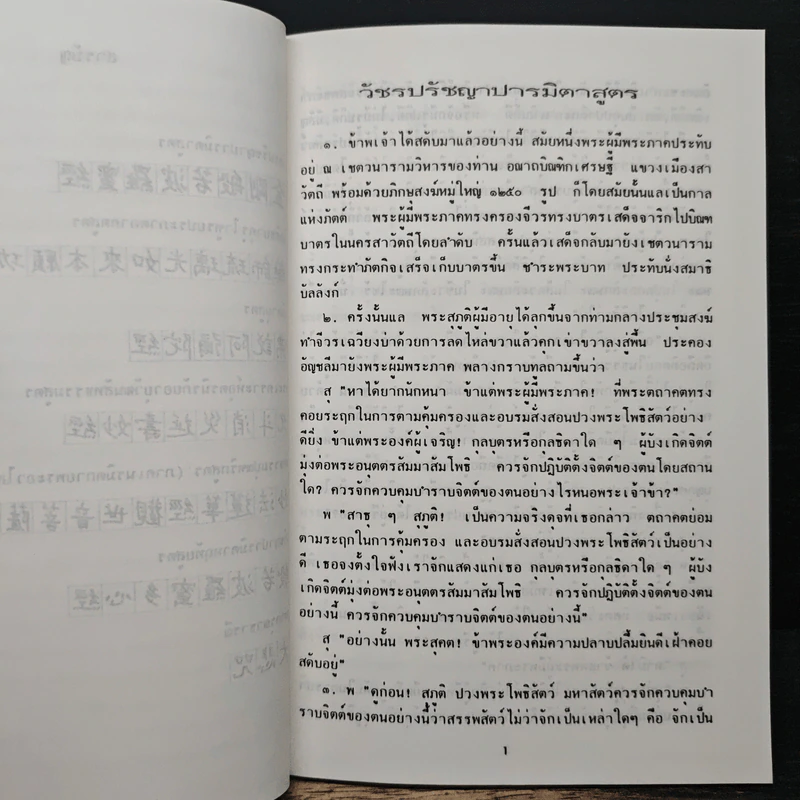 วัชรปรัชญาปารมิตาสูตร
๑. ข้าพเจ้าได้สดับมาแล้วอย่างนี้ สมัยหนึ่งพระผู้มีพระภาคประทับ
อยู่ ณ เชตวนารามวิหารของท่าน อณาถบิณฑิกเศรษฐี แขวงเมืองสา
วัตถี พร้อมด้วยภิกษุสงฆ์หมู่ใหญ่ ๑๒๕๐ รูป ก็โดยสมัยนั้นแลเป็นกาล
แห่งภัตต์ พระผู้มีพระภาคทรงครองจีวรทรงบาตรเสด็จจาริกไปบิณฑ
บาตรในนครสาวัตถีโดยลำดับ ครั้นแล้วเสด็จกลับมายังเชตวนาราม
ทรงกระทำภัตกิจเสร็จเก็บบาตรขึ้น ชำระพระบาท ประทับนั่งสมาธิ
บัลลังก์
๒. ครั้งนั้นแล พระสุภูติผู้มีอายุได้ลุกขึ้นจากท่ามกลางประชุมสงฆ์
ทำจีวรเฉวียงบ่าด้วยการลดไหล่ขวาแล้วคุกเข่าขวาลงสู่พื้น ประคอง
อัญชลีมายังพระผู้มีพระภาค พลางกราบทูลถามขึ้นว่า
สุ "หาได้ยากนักหนา ข้าแต่พระผู้มีพระภาค! ที่พระตถาคตทรง
คอยระฤกในการตามคุ้มครองและอบรมสั่งสอนปวงพระโพธิสัตว์อย่าง
ดียิ่ง ข้าแต่พระองค์ผู้เจริญ! กุลบุตรหรือกุลธิดาใด ๆ ผู้บังเกิดจิตต์
มุ่งต่อพระอนุตตรสัมมาสัมโพธิ ควรจักปฏิบัติตั้งจิตต์ของตนโดยสถาน
ใด? ควรจักควบคุมบำราบจิตต์ของตนอย่างไรหนอพระเจ้าข้า?"
พ "สาธุ ๆ สุภูติ! เป็นความจริงดุจที่เธอกล่าว ตถาคตย่อม
ตามระฤกในการคุ้มครอง และอบรมสั่งสอนปวงพระโพธิสัตว์เป็นอย่าง
ดี เธอจงตั้งใจฟังเราจักแสดงแก่เธอ กุลบุตรหรือกุลธิดาใด ๆ ผู้บัง
เกิดจิตต์มุ่งต่อพระอนุตตรสัมมาสัมโพธิ ควรจักปฏิบัติตั้งจิตต์ของตน
อย่างนี้ ควรจักควบคุมบำราบจิตต์ของตนอย่างนี้"
สุ "อย่างนั้น พระสุคต! ข้าพระองค์มีความปลาบปลื้มยินดีเฝ้าคอย
สดับอยู่"
๓. พ "ดูก่อน! สุภูติ ปวงพระโพธิสัตว์ มหาสัตว์ควรจักควบคุมบำ
ราบจิตต์ของตนอย่างนี้ว่าสรรพสัตว์ไม่ว่าจักเป็นเหล่าใดๆ คือ จักเป็น
1